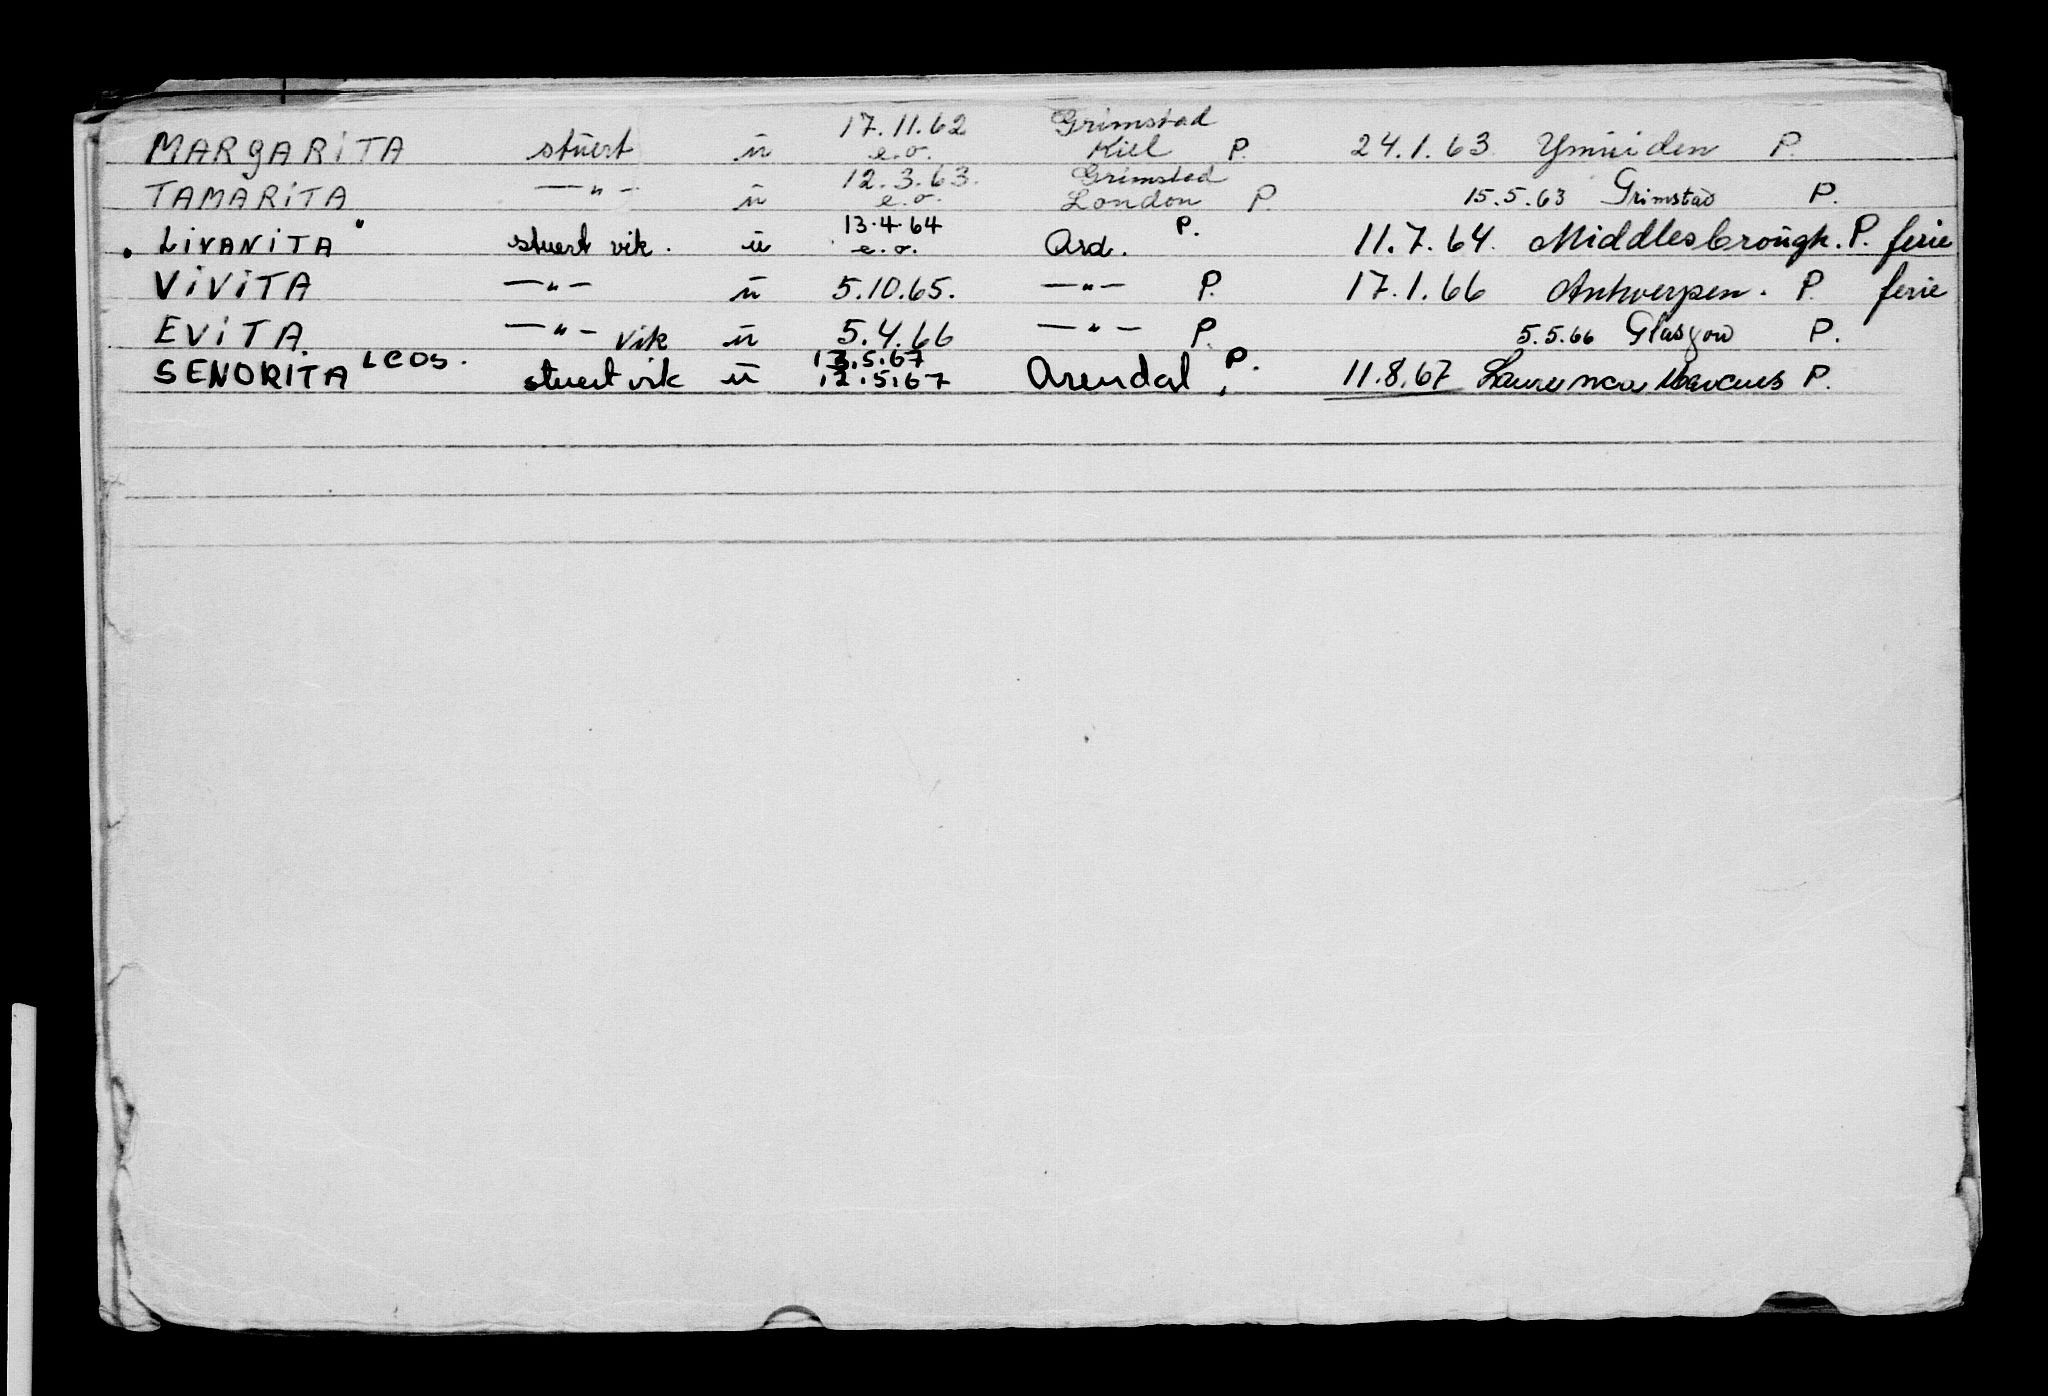 MARGARITA stuert u 17.11.62 e.o. Grimstad Kiel P. 24.1.63 Ymuiden P.
TAMARITA —"— u 12.3.63. e.o. Grimstad London P. 15.5.63 Grimstad P.
LIVANITA" stuert vik. u 13.4.64 e.o. Ard. P. 11.7.64. Middlesbrough. P. ferie
VIVITA —"— u 5.10.65. —"— P. 17.1.66 Antwerpen. P. ferie
EVITA —"— vik u 5.4.66 —"— P. 5.5.66 Glasgow P.
SENORITA LCOS. stuert vik u 13.5.67 12.5.67 Arendal, P. 11.8.67 P.